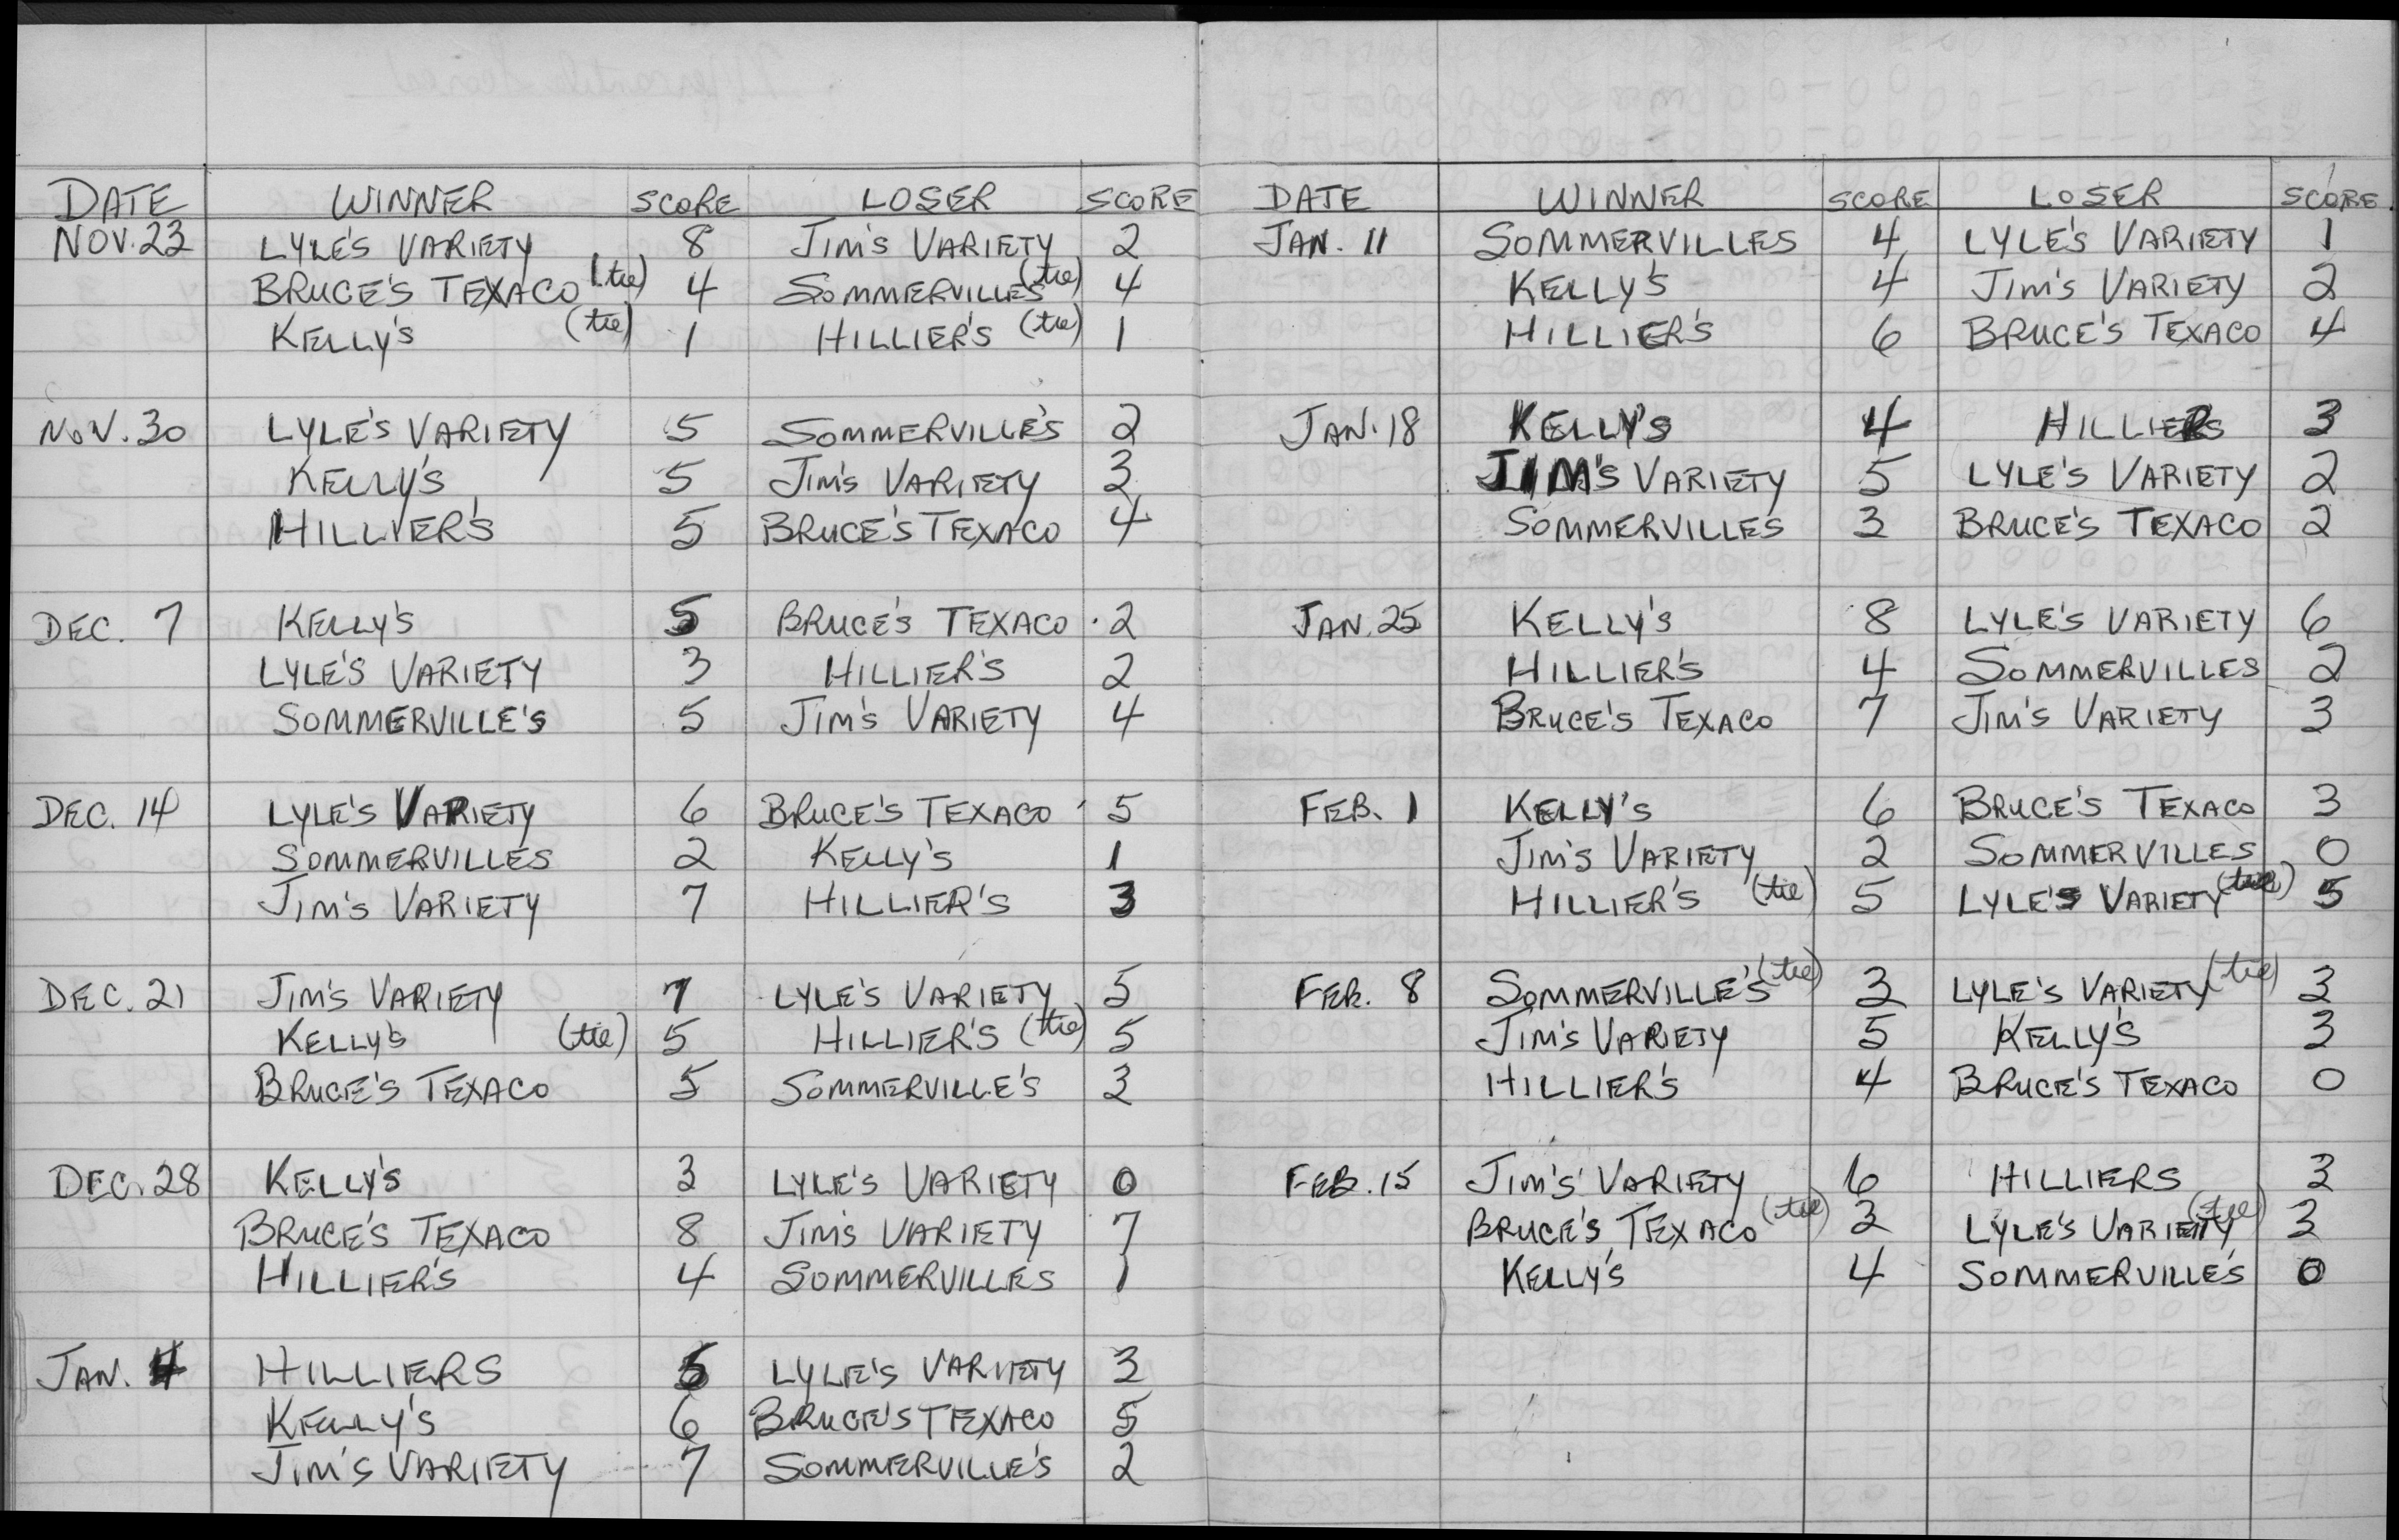 DATE WINNER SCORE LOSER SCORE
NOV. 23 LYLE'S VARIETY 8 JIM'S VARIETY 2
BRUCE'S TEXACO (tie) 4 SOMMERVILLE'S (tie) 4
KELLY'S (tie) 1 HILLIER'S (tie) 1
NOV. 30 LYLE'S VARIETY 5 SOMMERVILLE'S 2
KELLY'S 5 JIM'S VARIETY 3
HILLIER'S 5 BRUCE'S TEXACO 4
DEC. 7 KELLY'S 5 BRUCE'S TEXACO 2
LYLE'S VARIETY 3 HILLIER'S 2
SOMMERVILLE'S 5 JIM'S VARIETY 4
DEC. 14 LYLE'S VARIETY 6 BRUCE'S TEXACO 5
SOMMERVILLES 2 KELLY'S 1
JIM'S VARIETY 7 HILLIER'S 3
DEC. 21 JIM'S VARIETY 7 LYLE'S VARIETY 5
KELLY'S (tie) 5 HILLIER'S (tie) 5
BRUCE'S TEXACO 5 SOMMERVILLE'S 3
DEC. 28 KELLY'S 3 LYLE'S VARIETY 0
BRUCE'S TEXACO 8 JIM'S VARIETY 7
HILLIER'S 4 SOMMERVILLES 1
JAN. 4 HILLIERS 5 LYLE'S VARIETY 3
KELLY'S 6 BRUCE'S TEXACO 5
JIM'S VARIETY 7 SOMMERVILLE'S 2
DATE WINNER SCORE LOSER SCORE
JAN. 11 SOMMERVILLES 4 LYLE'S VARIETY 1
KELLY'S 4 JIM'S VARIETY 2
HILLIER'S 6 BRUCE'S TEXACO 4
JAN. 18 KELLY'S 4 HILLIERS 3
JIM'S VARIETY 5 LYLE'S VARIETY 2
SOMMERVILLES 3 BRUCE'S TEXACO 2
JAN. 25 KELLY'S 8 LYLE'S VARIETY 6
HILLIER'S 4 SOMMERVILLES 2
BRUCE'S TEXACO 7 JIM'S VARIETY 3
FEB. 1 KELLY'S 6 BRUCE'S TEXACO 3
JIM'S VARIETY 2 SOMMERVILLES 0
HILLIER'S (tie) 5 LYLE'S VARIETY (tie) 5
FEB. 8 SOMMERVILLE'S (tie) 3 LYLE'S VARIETY (tie) 3
JIM'S VARIETY 5 KELLY'S 3
HILLIER'S 4 BRUCE'S TEXACO 0
FEB. 15 JIM'S VARIETY 6 HILLIERS 3
BRUCE'S TEXACO (tie) 3 LYLE'S VARIETY (tie) 3
KELLY'S 4 SOMMERVILLE'S 0